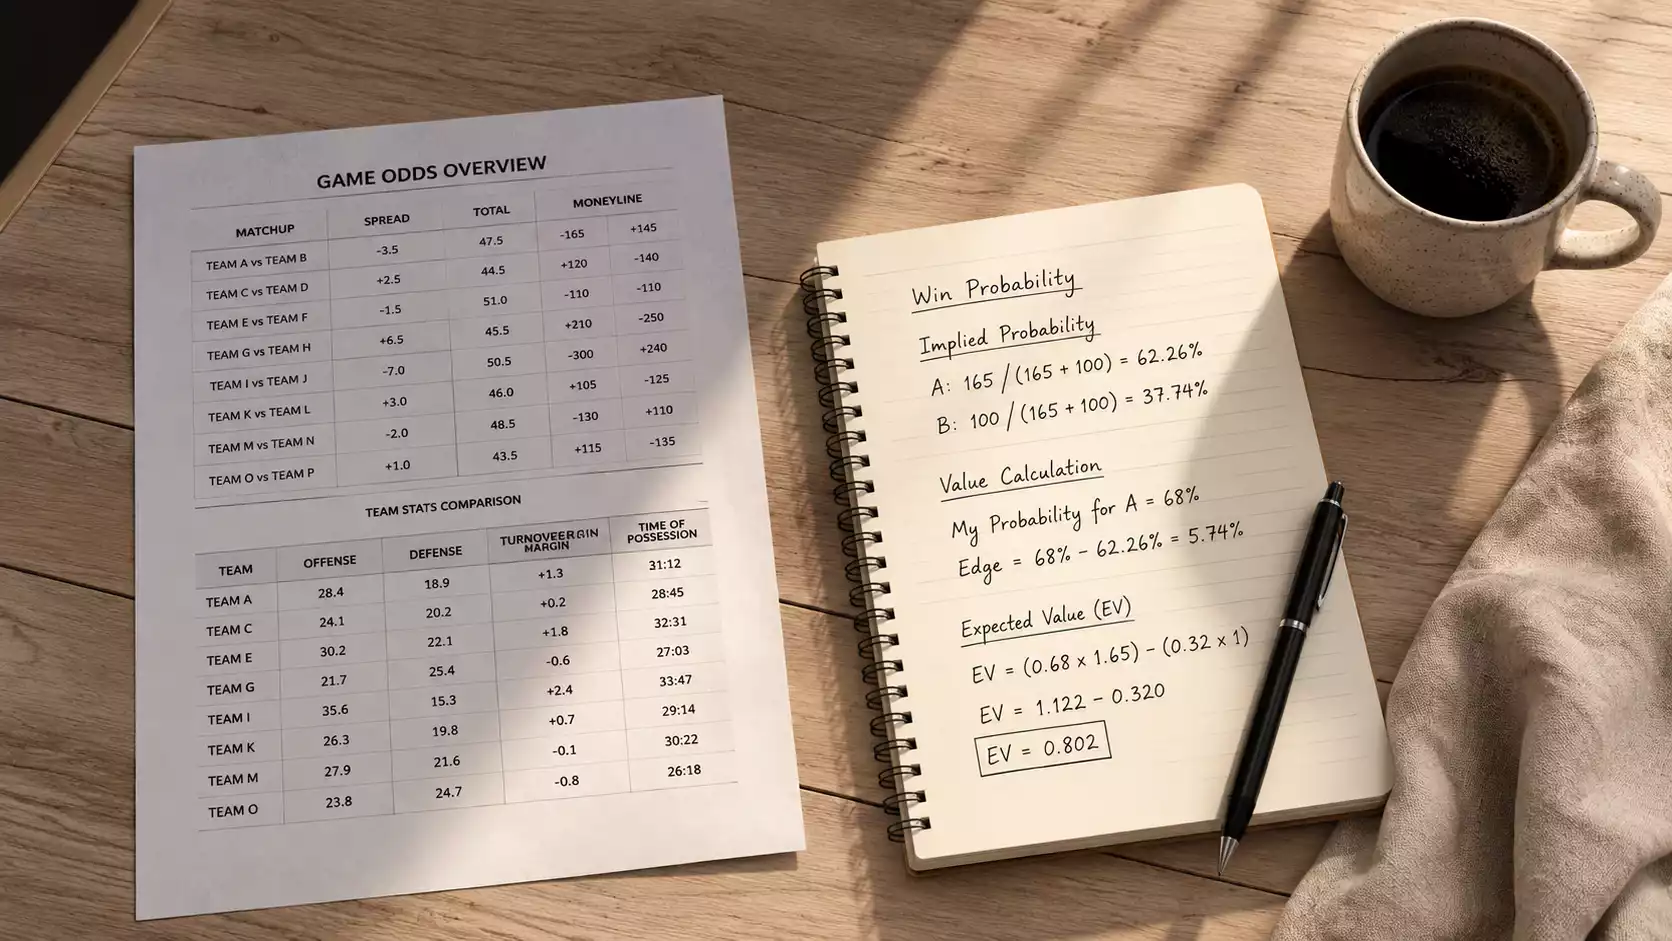 GAME ODDS OVERVIEW
MATCHUP SPREAD TOTAL MONEYLINE
TEAM A vs TEAM B -3.5 47.5 -165 +145
TEAM C vs TEAM D +2.5 44.5 +120 -140
TEAM E vs TEAM F -1.5 51.0 -110 -110
TEAM G vs TEAM H +6.5 45.5 +210 -250
TEAM I vs TEAM J -7.0 50.5 -300 +240
TEAM K vs TEAM L +3.0 46.0 +105 -125
TEAM M vs TEAM N -2.0 48.5 -130 +110
TEAM O vs TEAM P +1.0 43.5 +115 -135
TEAM STATS COMPARISON
TEAM OFFENSE DEFENSE MARGIN TIME OF POSSESSION
TEAM A 28.4 18.9 +1.3 31:12
TEAM C 24.1 20.2 +0.2 28:45
TEAM E 30.2 22.1 +1.8 32:31
TEAM G 21.7 25.4 -0.6 27:03
TEAM I 35.6 15.3 +2.4 33:47
TEAM K 26.3 19.8 +0.7 29:14
TEAM M 27.9 21.6 -0.1 30:22
TEAM O 23.8 24.7 -0.8 26:18
Win Probability
Implied Probability
A: 165 / (165 + 100) = 62.26%
B: 100 / (165 + 100) = 37.74%
Value Calculation
My Probability for A = 68%
Edge = 68% - 62.26% = 5.74%
Expected Value (EV)
EV = (0.68 × 1.65) - (0.32 × 1)
EV = 1.122 - 0.320
EV = 0.802